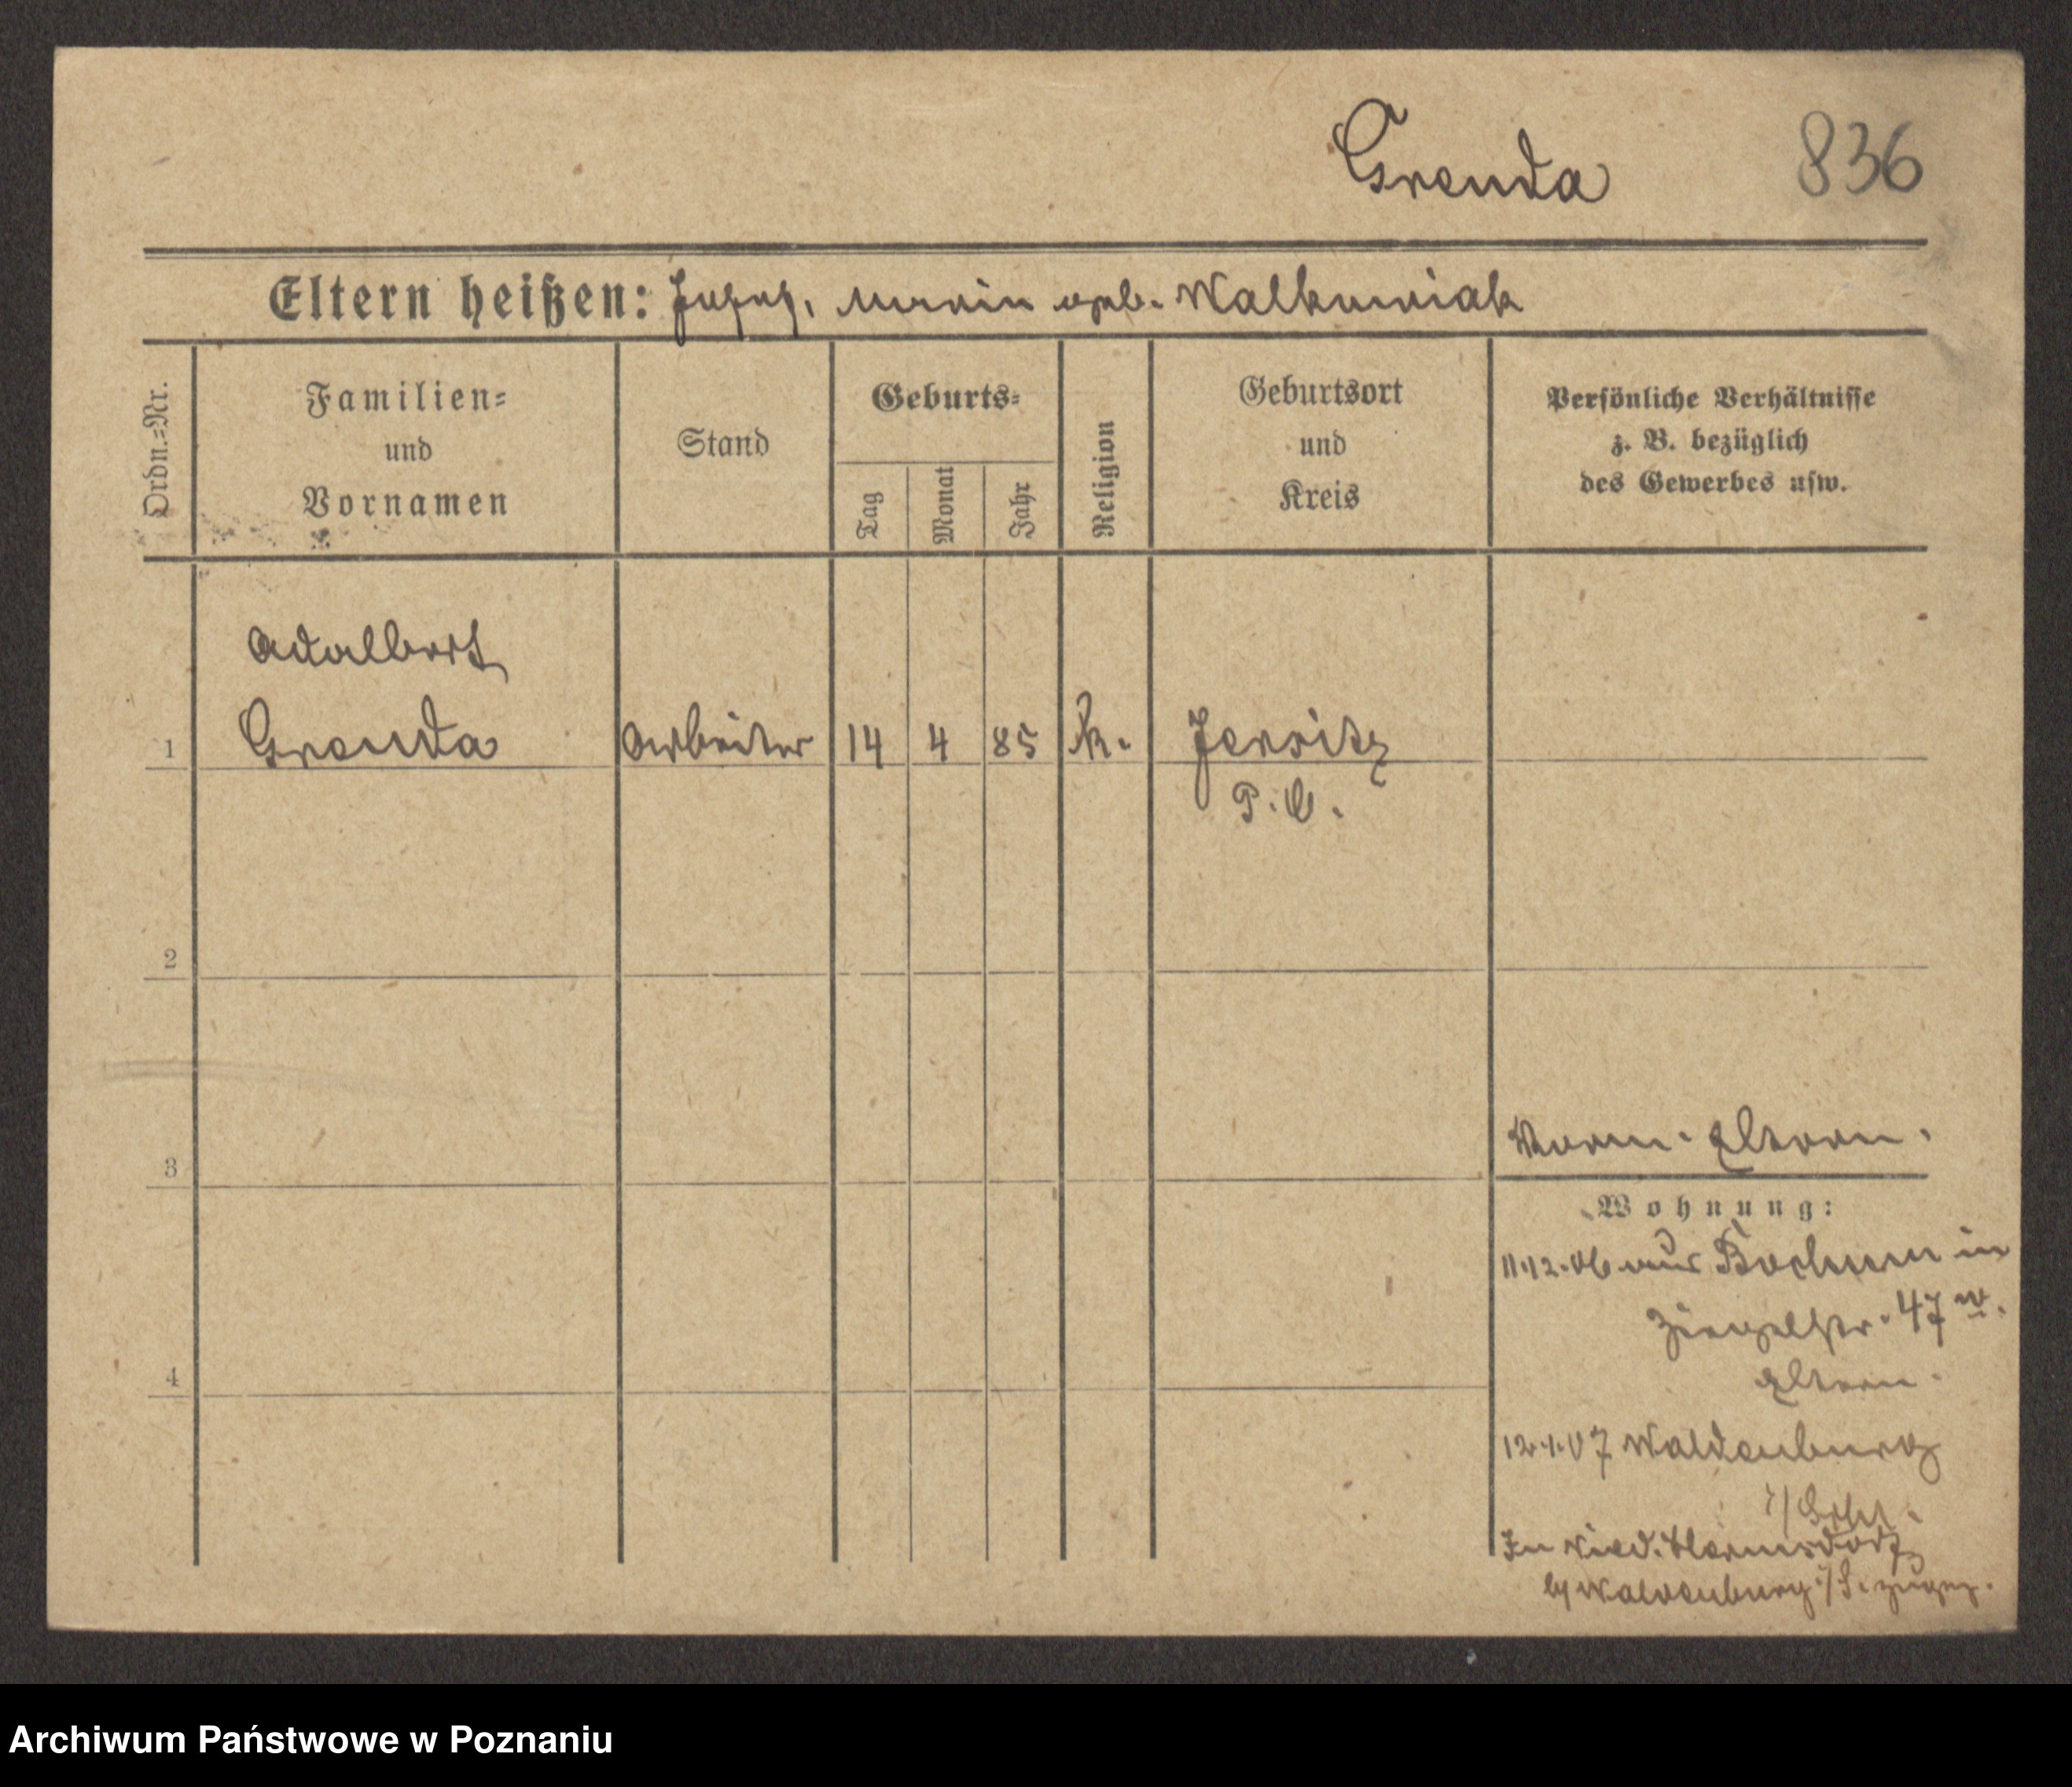 Grenda 836
Eltern heißen: Josef, Maria geb. Walkowiak
Ordn.=Nr.
Familien=
und
Vornamen
Stand
Geburts=
Tag
Monat
Jahr
Religion
Geburtsort
und
Kreis
Persönliche Verhältnisse
z. B. bezüglich
des Gewerbes usw.
Adalbert
1 Grenda Arbeiter 14 4 85 k. Jersitz
P. O.
2
3
Vorm. Eltern.
Wohnung:
11.12.06 aus Bochum in
Ziegelstr. 47 w.
Eltern.
4
12.1.07 Waldenburg
i/Schl.
In Nied. Hermsdorf
b/ Waldenburg i/S. zugez.
Archiwum Państwowe w Poznaniu